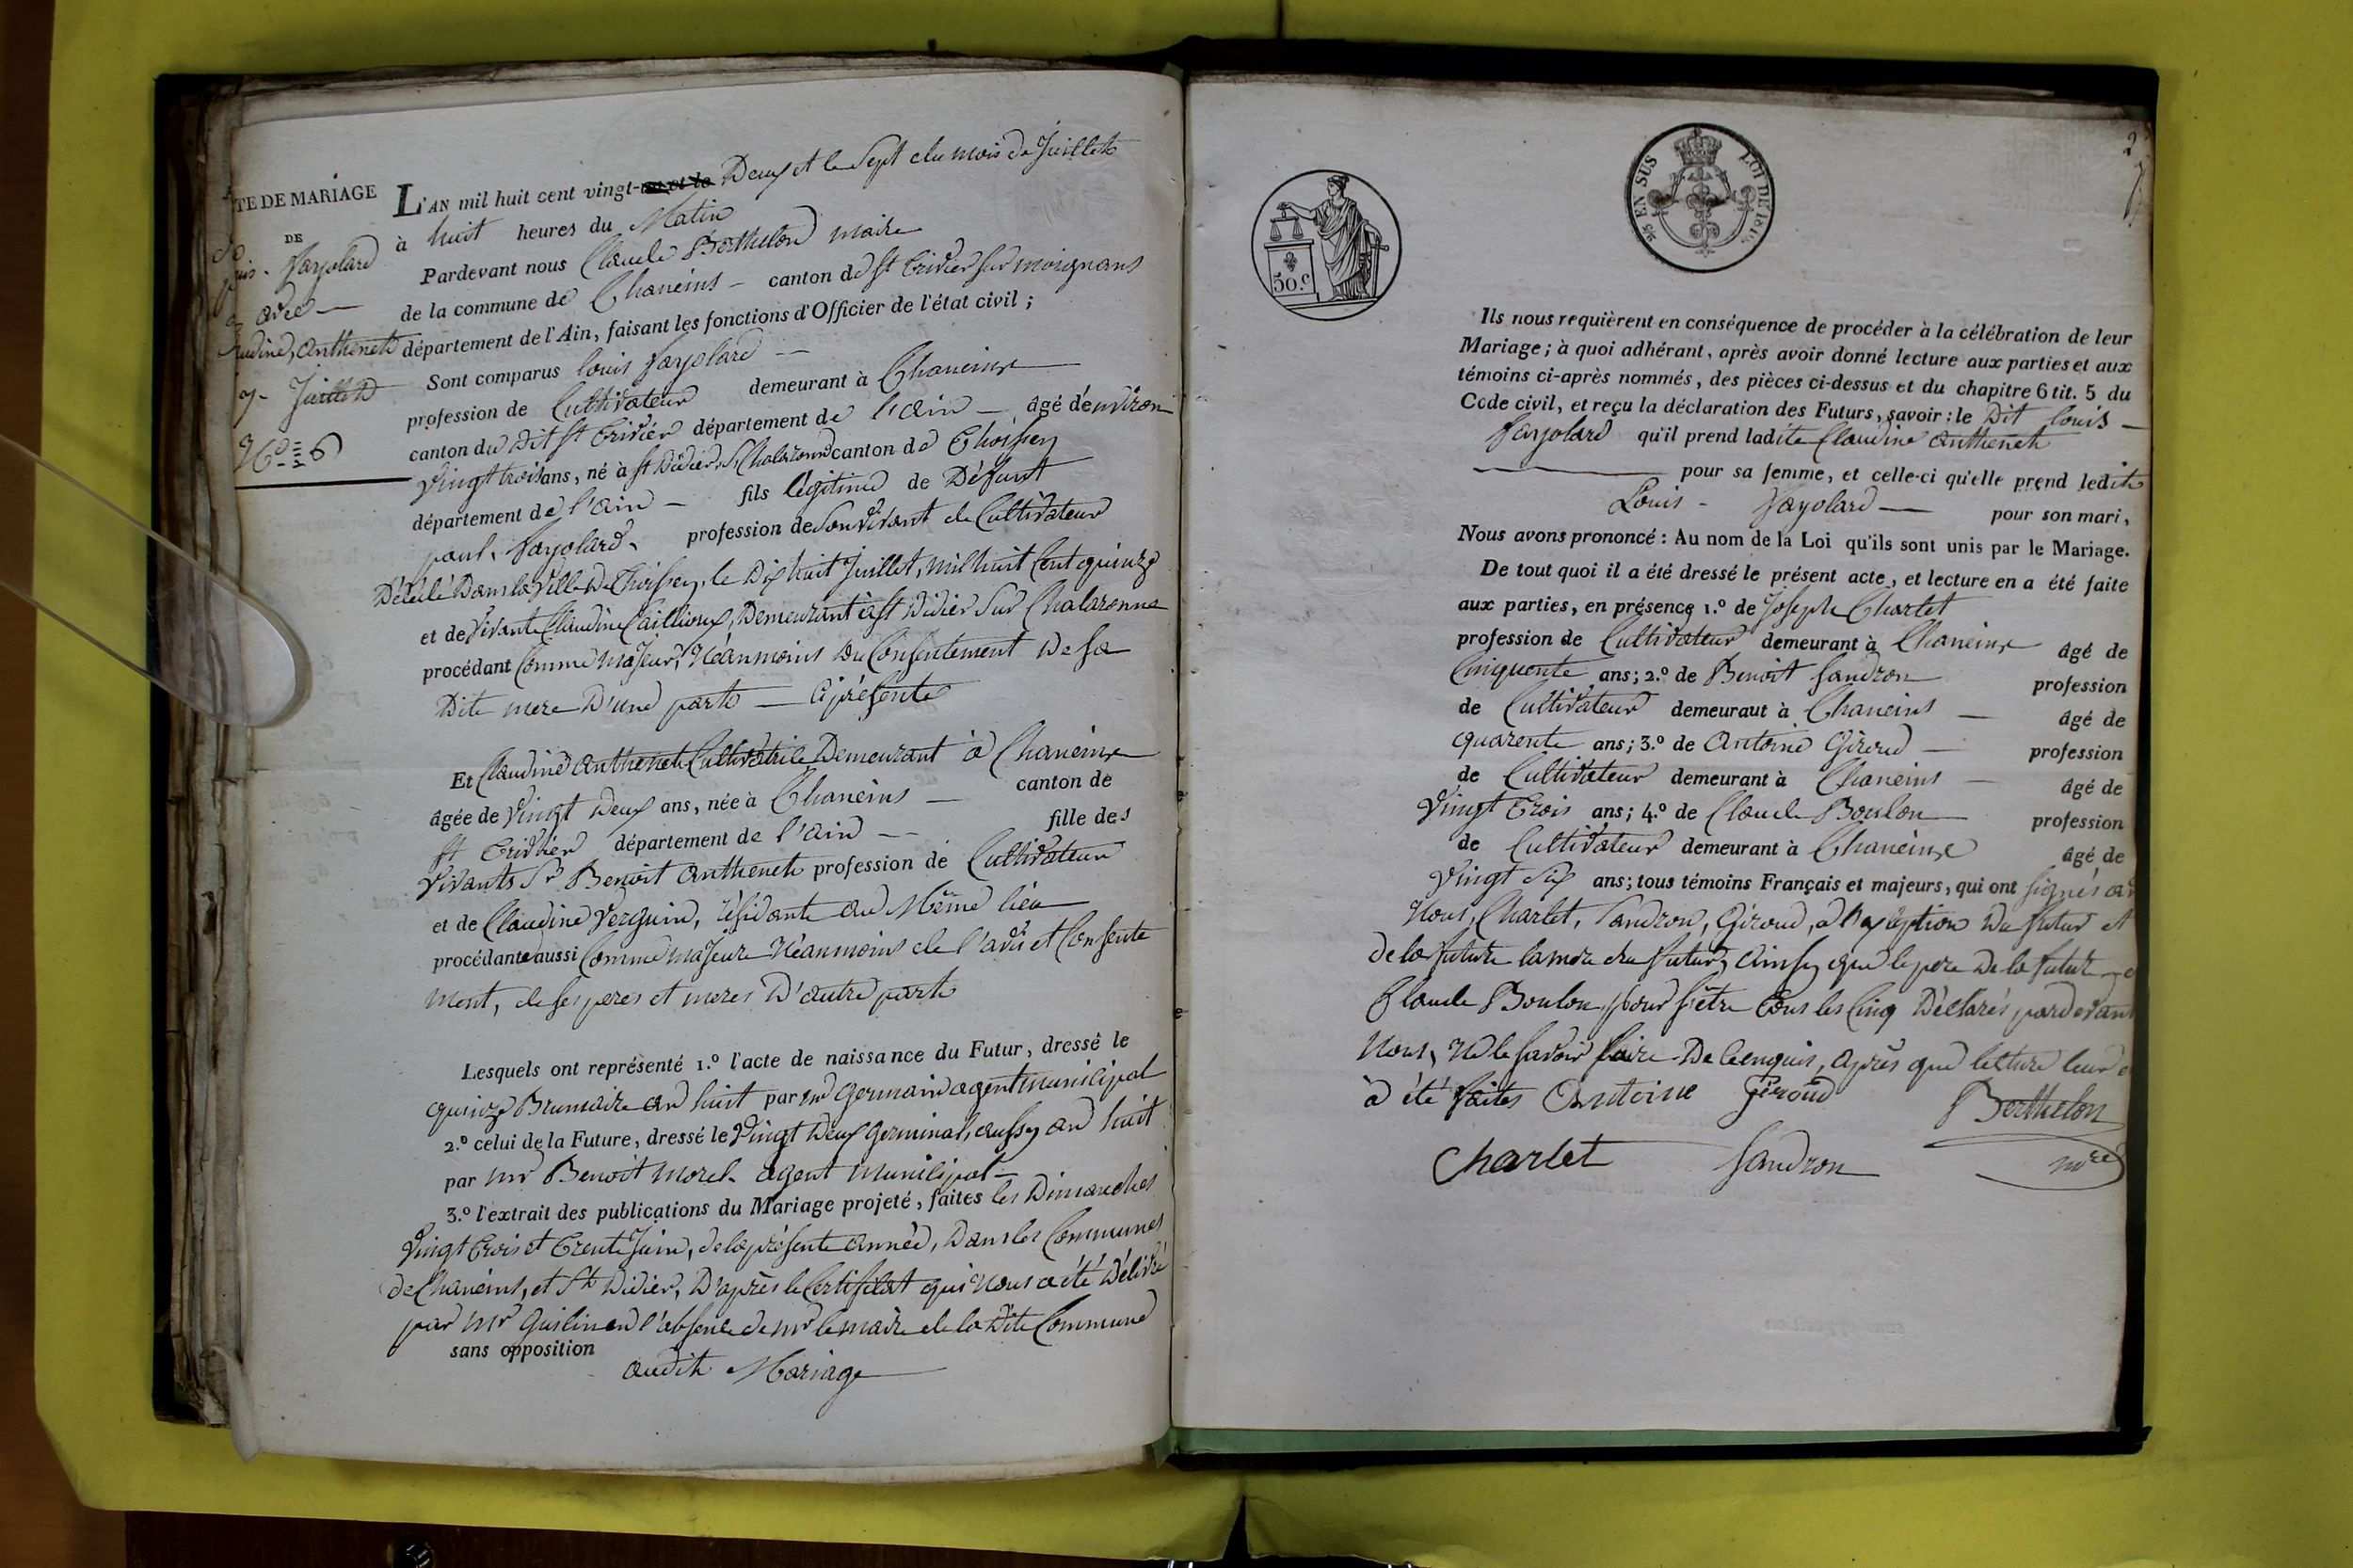 TE DE MARIAGE
DE
Fayolard
avec
Anthenet
7. Juillet
N.º 6
L'AN mil huit cent vingt-un et le Deux et le Sept du mois de Juillet
à huit heures du Matin
Pardevant nous Claude Berthelon maire
de la commune de Chaneins - canton de st trivier sur moignans
département de l'Ain, faisant les fonctions d'Officier de l'état civil ;
Sont comparus louis fayolard
profession de Cultivateur demeurant à Chaneins
canton du Dit st trivier département de l'ain - âgé d'environ
vingt trois ans, né à st Didier s. Chalaronne canton de thoissey
département de l'ain - fils légitime de Défunt
paul fayolard profession de Son vivant de Cultivateur
Décédé Dans la ville De thoissey, le Dix huit Juillet, mil huit Cent quinze
et de vivante Claudine Cailloux, Demeurant à st Didier sur Chalaronne
procédant Comme majeur, Néanmoins Du Consentement De sa
Dite mere D'une part - Ci présente
Et Claudine Anthenet Cultivatrice Demeurant à Chaneins
âgée de vingt Deux ans, née à Chaneins - canton de
st trivier département de l'ain - fille des
vivants Sr Benoit Anthenet profession de Cultivateur
et de Claudine Verguin, résidante au Même lieu
procédante aussi Comme majeure Néanmoins de l'avis et Consente
ment, de ses peres et meres D'autre part
Lesquels ont représenté 1.º l'acte de naissance du Futur, dressé le
quinze Brumaire an huit par mr Germain agent municipal
2.º celui de la Future, dressé le vingt Deux germinal, aussy an huit
par mr Benoit morel agent municipal
3.º l'extrait des publications du Mariage projeté, faites les Dimanches
vingt trois et trente Juin, de la présente année, Dans les Communes
de Chaneins, et St Didier, D'après le Certificat qui Nous a été Délivré
par mr Guilin en l'absence de mr le maire de la Dite Commune
sans opposition
audit Mariage
50.c
EN SUS
LOI DE 1816
Ils nous requièrent en conséquence de procéder à la célébration de leur
Mariage ; à quoi adhérant, après avoir donné lecture aux parties et aux
témoins ci-après nommés, des pièces ci-dessus et du chapitre 6 tit. 5 du
Code civil, et reçu la déclaration des Futurs, savoir : le Dit louis
fayolard qu'il prend ladite Claudine Anthenet
pour sa femme, et celle-ci qu'elle prend ledit
Louis - fayolard pour son mari,
Nous avons prononcé : Au nom de la Loi qu'ils sont unis par le Mariage.
De tout quoi il a été dressé le présent acte, et lecture en a été faite
aux parties, en présence 1.º de Joseph Charlet
profession de Cultivateur demeurant à Chaneins âgé de
Cinquente ans ; 2.º de Benoit Sandron profession
de Cultivateur demeuraut à Chaneins - âgé de
quarente ans ; 3.º de Antoine Giroud profession
de Cultivateur demeurant à Chaneins - âgé de
vingt trois ans ; 4.º de Claude Boulon profession
de Cultivateur demeurant à Chaneins âgé de
vingt Six ans ; tous témoins Français et majeurs, qui ont signés
Nous, Charlet, Sandron, Giroud, à l'exception Du futur et
de la future la mere du futur, ainsy que le pere De la future
Claude Boulon, pour s'être tous les Cinq Déclarés pardevant
Nous, Ne le savoir faire De Ce enquis, après que lecture leur
à été faites Antoine Giroud Berthelon
Charlet Sandron mre